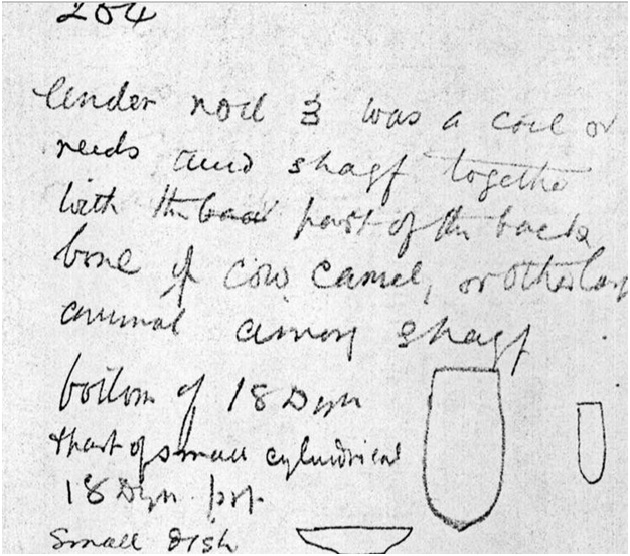 Under was a coil or
reeds and shagf together
With the part of the back
bone of cow camel, or other
animal among shagf
bottom of 18 Dyn
& part of small cylindrical
18 Dyn
Small dish